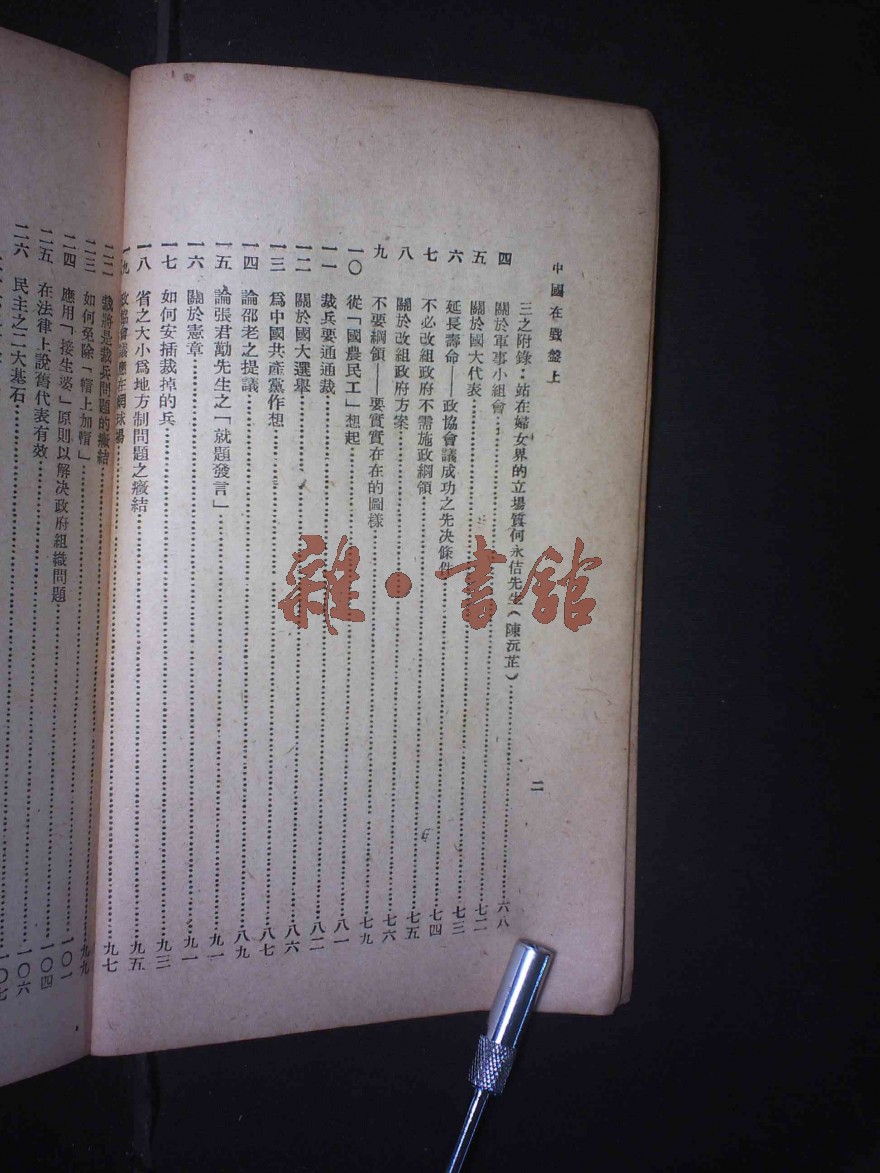 中國在戥盤上
二
三之附錄：站在婦女界的立場質何永佶先生（陳沅芷）……六八
四 關於軍事小組會……七二
五 關於國大代表……七三
六 延長壽命——政協會議成功之先決條件……七四
七 不必改組政府不需施政綱領……七五
八 關於改組政府方案……七六
九 不要綱領——要實實在在的圖樣……七九
一〇 從「國農民工」想起……八一
一一 裁兵要通通裁……八二
一二 關於國大選舉……八六
一三 爲中國共產黨作想……八七
一四 論邵老之提議……八九
一五 論張君勱先生之「就題發言」……九一
一六 關於憲章……九一
一七 如何安插裁掉的兵……九三
一八 省之大小爲地方制問題之癥結……九五
一九 政協會議應在網球場……九七
二二 裁將是裁兵問題的癥結
二三 如何免除「帽上加帽」……九九
二四 應用「接生婆」原則以解决政府組織問題……一〇一
二五 在法律上說舊代表有效……一〇四
二六 民主之二大基石……一〇六
一〇七
雜·書館